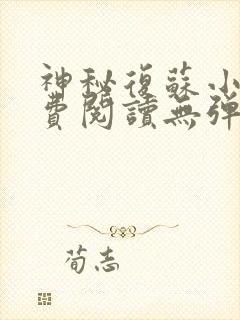 神秘復蘇小
費閱讀無彈
荀志